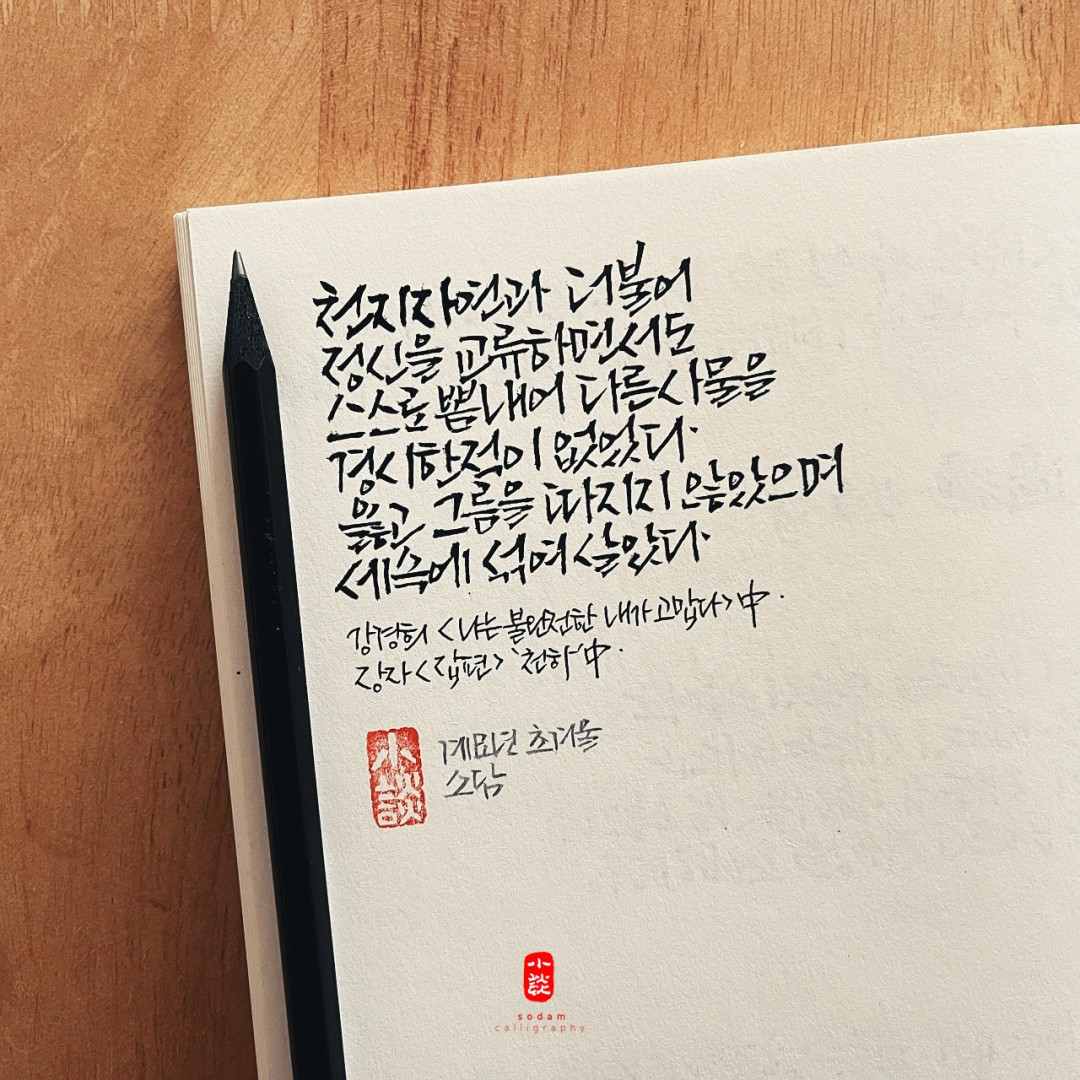 천지자연과 더불어
정신을 교류하면서도
스스로 뽐내어 다른 사물을
경시한적이 없었다.
옳고 그름을 따지지 않았으며
세속에 섞여 살았다.
강경희 <나는 불완전한 내가 고맙다> 中.
장자 <잡편> '천하' 中.
小談
계묘년 초겨울
소담
小談
sodam
calligraphy